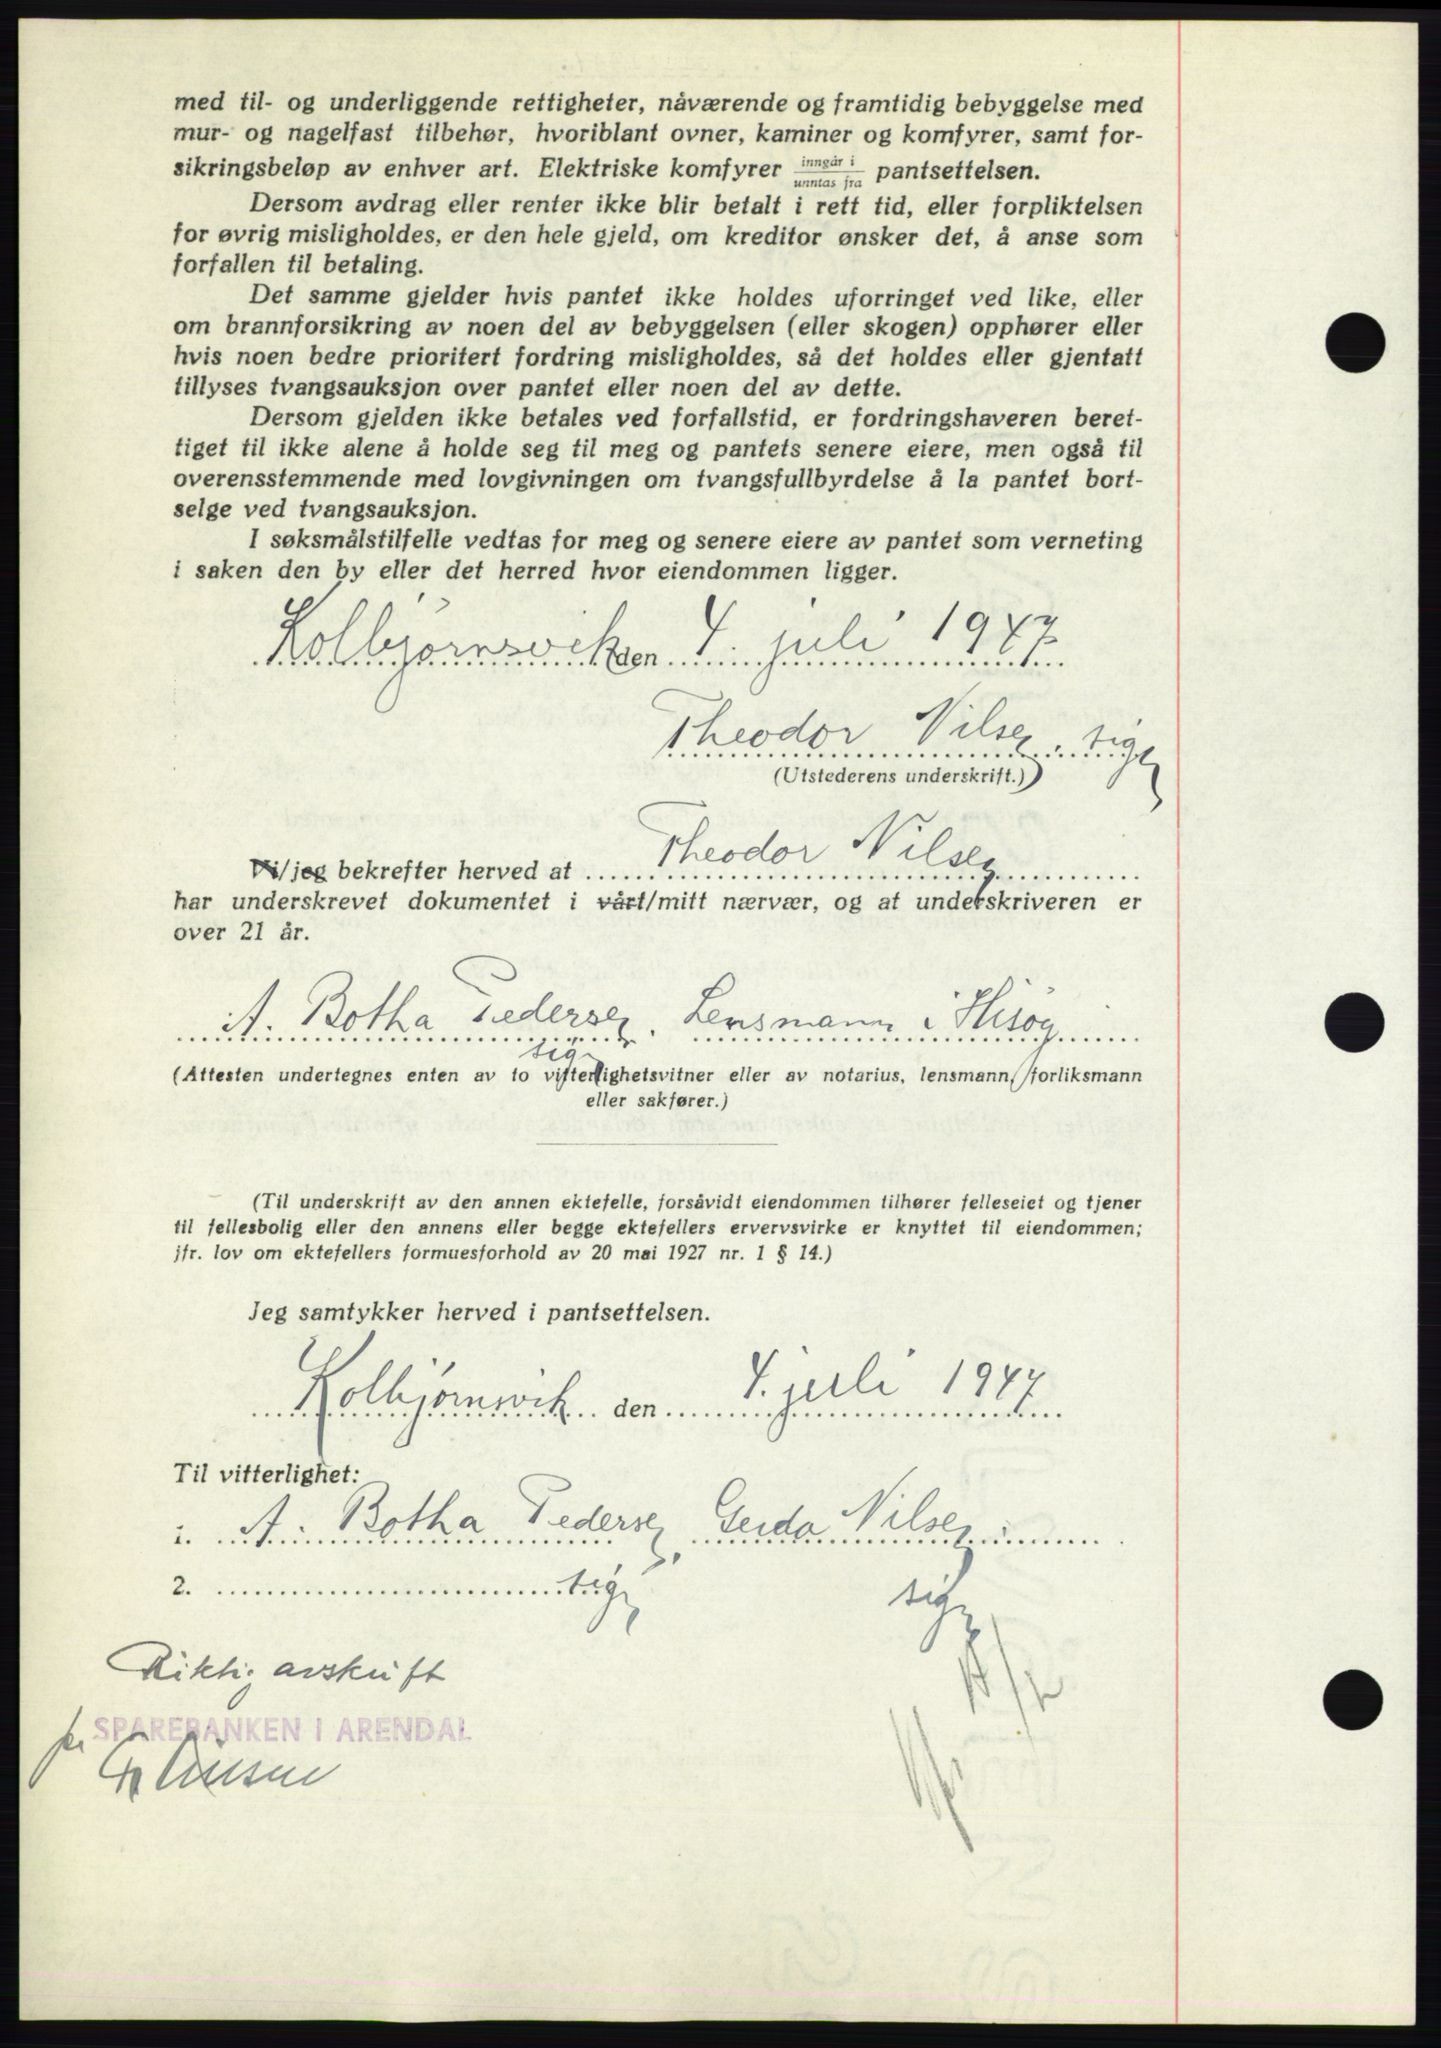 med til- og underliggende rettigheter, nåværende og framtidig bebyggelse med
mur- og nagelfast tilbehør, hvoriblant ovner, kaminer og komfyrer, samt for-
sikringsbeløp av enhver art. Elektriske komfyrer inngår i / unntas fra pantsettelsen.
Dersom avdrag eller renter ikke blir betalt i rett tid, eller forpliktelsen
for øvrig misligholdes, er den hele gjeld, om kreditor ønsker det, å anse som
forfallen til betaling.
Det samme gjelder hvis pantet ikke holdes uforringet ved like, eller
om brannforsikring av noen del av bebyggelsen (eller skogen) opphører eller
hvis noen bedre prioritert fordring misligholdes, så det holdes eller gjentatt
tillyses tvangsauksjon over pantet eller noen del av dette.
Dersom gjelden ikke betales ved forfallstid, er fordringshaveren beret-
tiget til ikke alene å holde seg til meg og pantets senere eiere, men også til
overensstemmende med lovgivningen om tvangsfullbyrdelse å la pantet bort-
selge ved tvangsauksjon.
I søksmålstilfelle vedtas for meg og senere eiere av pantet som verneting
i saken den by eller det herred hvor eiendommen ligger.
Kolbjørnsvik den 4. juli 1947
Theodor Nilsen. sign
(Utstederens underskrift.)
Vi/jeg bekrefter herved at Theodor Nilsen
har underskrevet dokumentet i vårt/mitt nærvær, og at underskriveren er
over 21 år.
A. Botha Pedersen. Lensmann i Hisøy
sign
(Attesten undertegnes enten av to vitterlighetsvitner eller av notarius, lensmann, forliksmann
eller sakfører.)
(Til underskrift av den annen ektefelle, forsåvidt eiendommen tilhører felleseiet og tjener
til fellesbolig eller den annens eller begge ektefellers ervervsvirke er knyttet til eiendommen;
jfr. lov om ektefellers formuesforhold av 20 mai 1927 nr. 1 § 14.)
Jeg samtykker herved i pantsettelsen.
Kolbjørnsvik den 4. juli 1947
Til vitterlighet:
1. A. Botha Pedersen, Gerda Nilsen
2. sign sign
Riktig avskrift
for SPAREBANKEN I ARENDAL